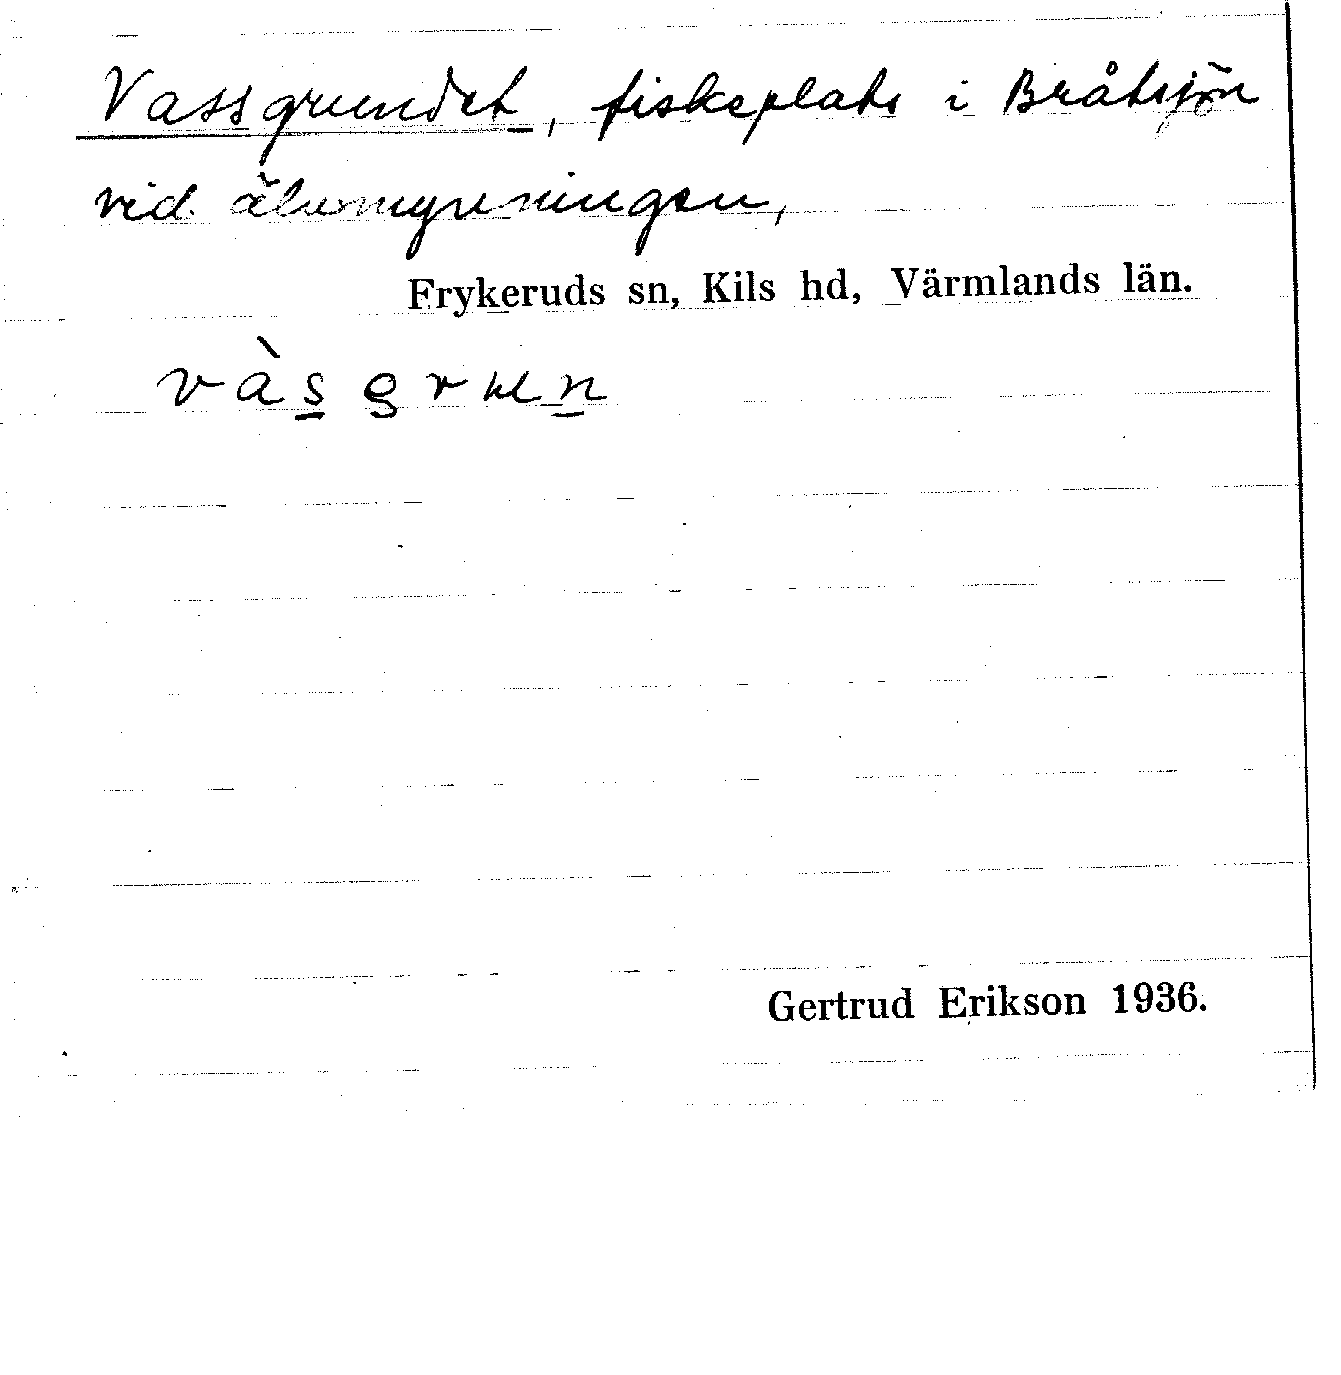 Vassgrundet, fiskeplats i Bråtsjön
vid älvmynningen,
Frykeruds sn, Kils hd, Värmlands län.
vàsgrun
Gertrud Erikson 1936.